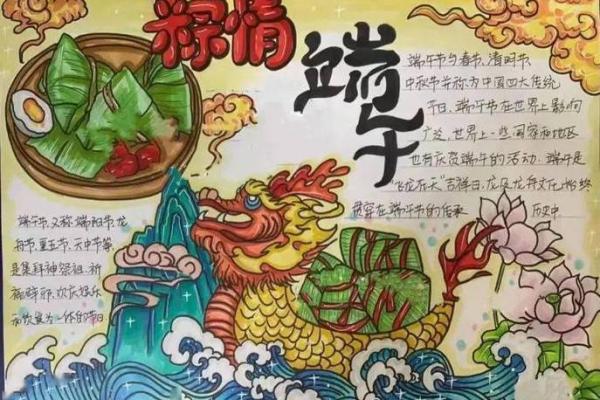 粽情
端午
端午节与春节、清明节、
中秋节并称为中国四大传统
节日、端午节在世界上影响
广泛,世界上一些国家和地区
也有庆贺端午的活动.端午是
"飞龙在天"吉祥日,龙及龙舟文化始终
贯穿在端午节的传承 历史中
端午节,又称端阳节、龙
舟节、重五节、天中节等,
是集拜神祭祖、祈
福辟邪、欢庆娱乐
和饮食为一体的节日